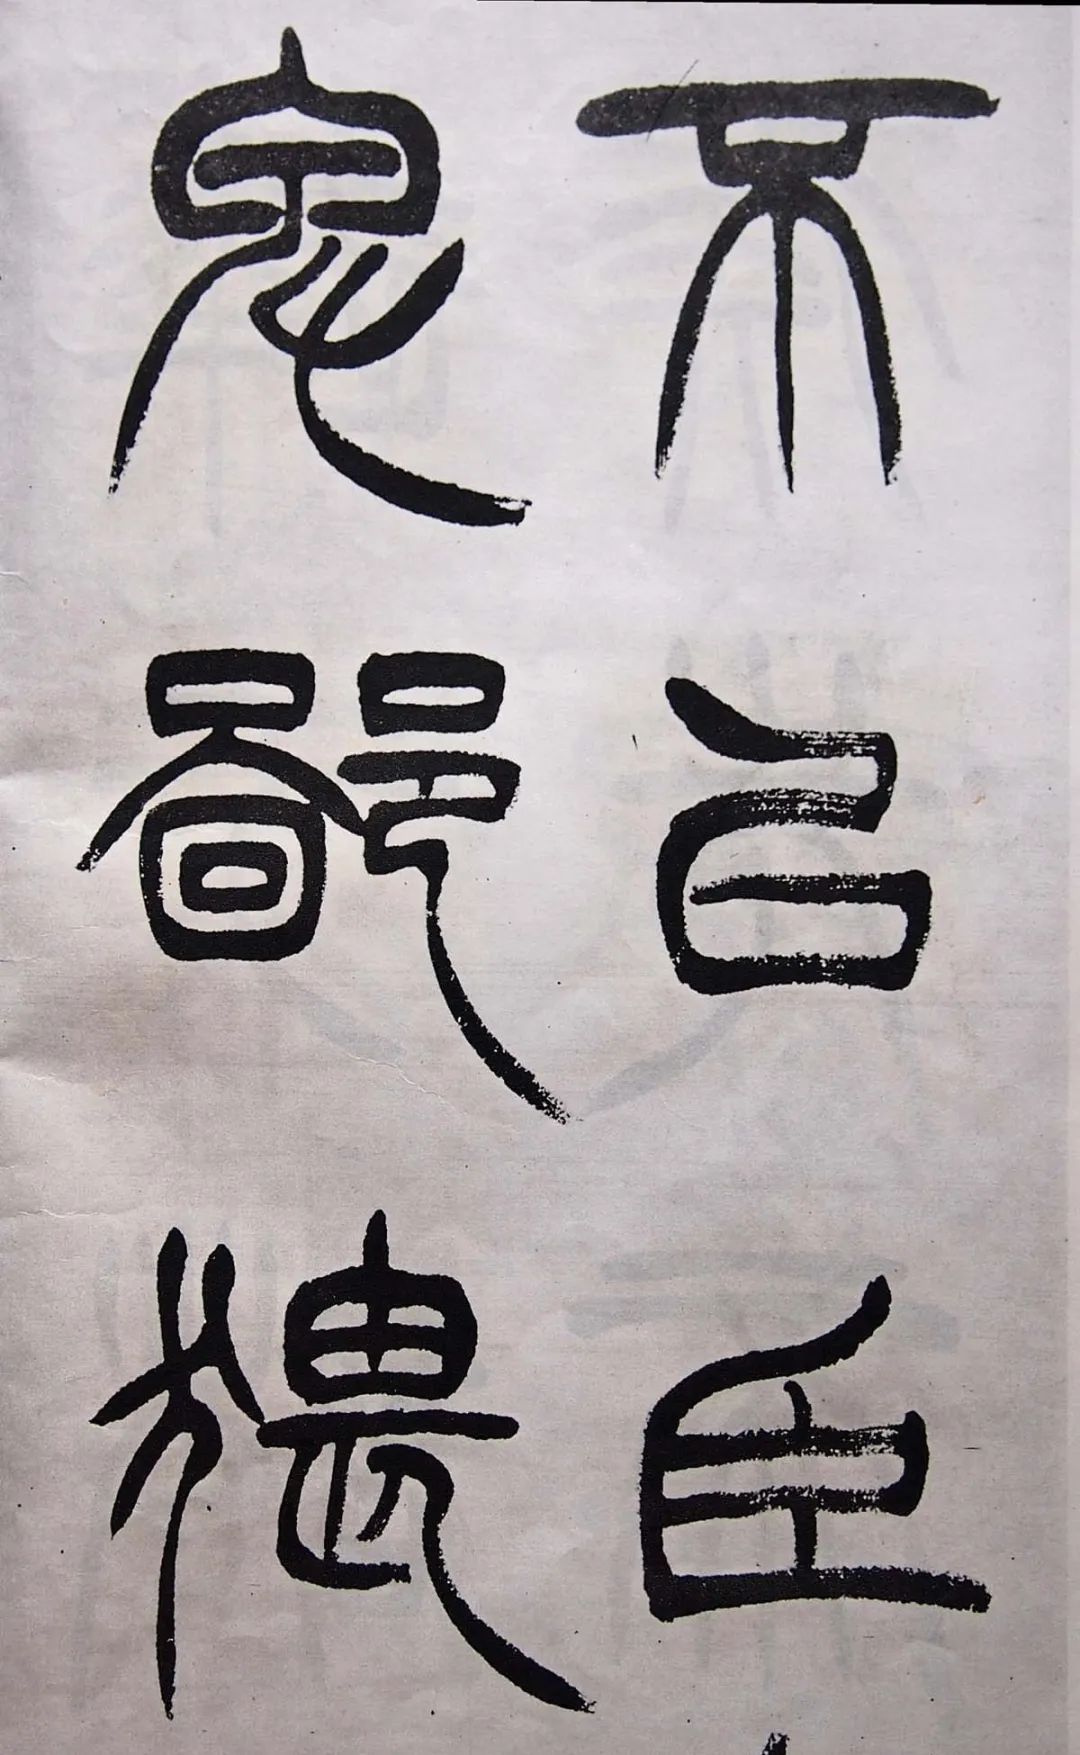 不以臣
卑鄙猥